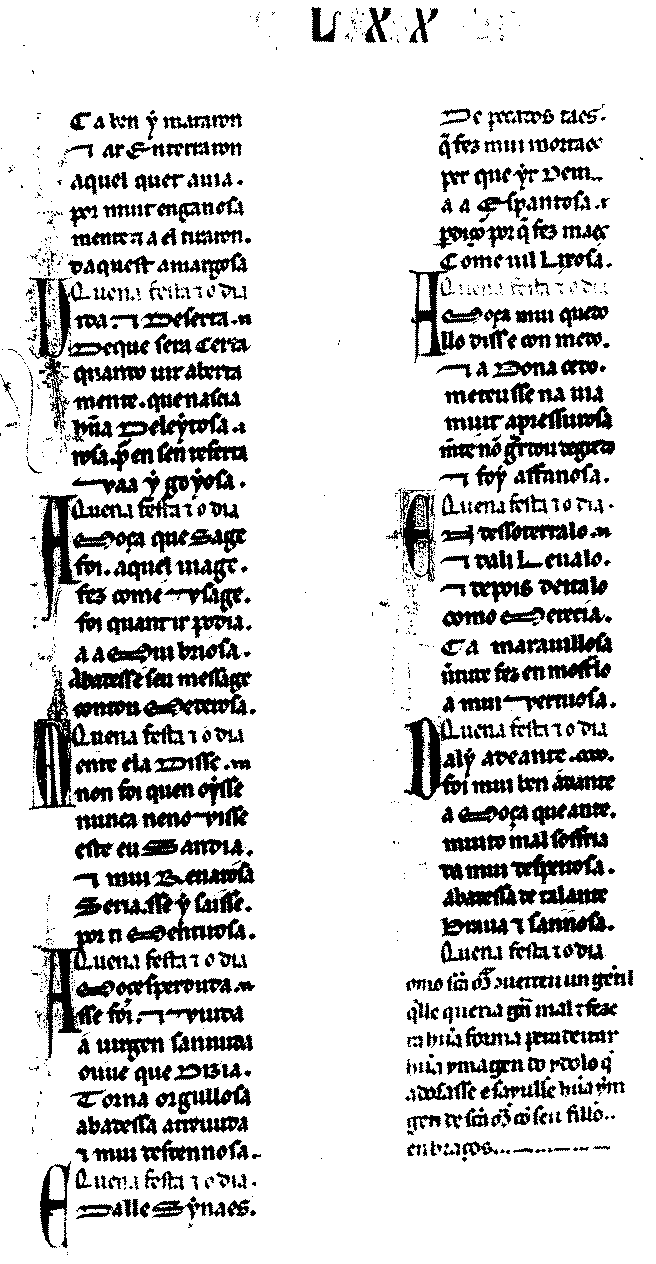 LXX
Ca ben ẏ mataron
⁊ ar Enterraron
aquel quer auia.
por muit enganosa
mente ⁊ a el tiraron.
daquest amargosa
Quena festa ⁊ o dia
Ida. ⁊ Deserta. m
Deque sera Certa
quanto uir aberta
mente. que nascia
hũa Deleẏtosa. ⁊
rosa. p̃ en sen reserta
uaa ẏ goẏosa.
Quena festa ⁊ o dia
A Moça que Sage
foi. aquel mage.
fez come ysage.
foi quant ir podia.
a a Mui briosa.
Abatesse seu message
contou Meterosa.
Quena festa ⁊ o dia
Mente ela Disse. m
non foi quen oẏsse
nunca neno uisse
este eu Sandia.
⁊ mui
Seria. sse ẏ saisse.
por ti Mentirosa.
Quena festa ⁊ o dia
A Moça esperduda. m
sse foi. ⁊ ⁊
a uirgen sannuda
ouue que Dizia.
Torna orgullosa
abadessa atreuuda
⁊ mui desdennosa.
Quena festa ⁊ o dia.
E
Dalle Sẏnaes.
De pecados taes.
q̃ fez mui mortaes
per que ẏr Deui
a a Espantosa. ⁊
por q̃ fez maes
Come uil Lixosa.
Quena festa ⁊ o dia
A Moça mui quedo
llo disse con medo.
⁊ a Dona cedo.
meteusse na uia
muit apressurosa
mẽte nõ
⁊ foẏ affanosa.
Quena festa ⁊ o dia.
E dessoterralo. m
⁊ dali Leualo.
⁊ depois deitalo
como Meteria.
Ca marauillosa
mẽte fez en mostralo
a mui uertuosa.
Quena festa ⁊ o dia
Dalẏ adeante.
foi mui ben ãdante
a Moça que ante.
muito mal soffria
da mui despeitosa.
Abadessa de talante
Braua ⁊ sannosa.
Quena festa ⁊ o dia
omo sc̃a un gentil
q̃lle queria gñ mal ⁊ feze
ra hũa forma pera deitar
hũa ymagen do ydolo q̃
adorasse e sayulle hũa ym
gen de sc̃a cõ seu fillo.
en braços.